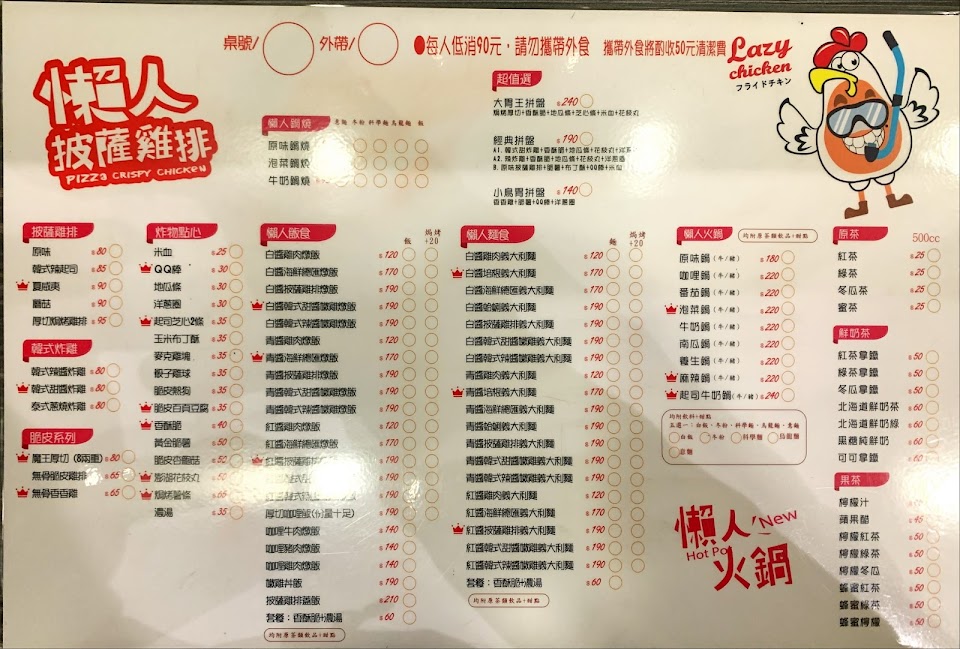 桌號/ 外帶/ ●每人低消90元，請勿攜帶外食 攜帶外食將酌收50元清潔費
Lazy
chicken
フライドチキン
懶人
披薩雞排
PIZZA CRISPY CHICKEN
懶人鍋燒 意麵 冬粉 科學麵 烏龍麵 飯
原味鍋燒
泡菜鍋燒
牛奶鍋燒
超值選
大胃王拼盤 $240
經典拼盤 $190
小鳥胃拼盤 $140
香香雞+脆薯+QQ棒+洋蔥圈
披薩雞排
原味 $80
韓式辣起司 $85
夏威夷 $90
蘑菇 $90
厚切焗烤雞排 $95
韓式炸雞
韓式辣醬炸雞 $80
韓式甜醬炸雞 $80
泰式蔥燒炸雞 $80
脆皮系列
魔王厚切 (8兩重) $80
無骨脆皮雞排 $65
無骨香香雞 $65
炸物點心
米血 $25
QQ棒 $30
地瓜條 $30
洋蔥圈 $30
起司芝心2條 $35
玉米布丁酥 $35
麥克雞塊 $35
骰子雞球 $35
脆皮熱狗 $35
脆皮百頁豆腐 $35
香酥脆 $40
黃金脆薯 $50
脆皮杏鮑菇 $50
澎湖花枝丸 $50
焗烤薯條 $65
濃湯 $35
懶人飯食 飯 焗烤+20
白醬雞肉燉飯 $120
白醬海鮮總匯燉飯 $170
白醬披薩雞排燉飯 $190
白醬韓式甜醬嫩雞燉飯 $190
白醬韓式辣醬嫩雞燉飯 $190
青醬雞肉燉飯 $120
青醬海鮮總匯燉飯 $170
青醬披薩雞排燉飯 $190
青醬韓式甜醬嫩雞燉飯 $190
青醬韓式辣醬嫩雞燉飯 $190
紅醬雞肉燉飯 $120
紅醬海鮮總匯燉飯
紅醬披薩雞排燉飯 $190
厚切咖哩飯(份量十足) $190
咖哩牛肉燉飯 $140
咖哩豬肉燉飯 $140
咖哩雞肉燉飯 $140
嫩雞丼飯 $190
披薩雞排蓋飯 $210
套餐：香酥脆+濃湯 $60
均附原茶類飲品+甜點
懶人麵食 麵 焗烤+20
白醬雞肉義大利麵 $120
白醬培根義大利麵 $170
白醬海鮮總匯義大利麵 $170
白醬蛤蜊義大利麵 $190
白醬披薩雞排義大利麵 $190
白醬韓式甜醬嫩雞義大利麵 $190
白醬韓式辣醬嫩雞義大利麵 $190
青醬雞肉義大利麵 $120
青醬培根義大利麵 $170
青醬海鮮義大利麵 $190
青醬蛤蜊義大利麵 $190
青醬披薩雞排義大利麵 $190
青醬韓式甜醬嫩雞義大利麵 $190
青醬韓式辣醬嫩雞義大利麵 $190
紅醬雞肉義大利麵 $120
紅醬海鮮總匯義大利麵 $170
紅醬披薩雞排義大利麵 $190
紅醬韓式甜醬嫩雞義大利麵 $190
紅醬韓式辣醬嫩雞義大利麵 $190
套餐：香酥脆+濃湯 $60
均附原茶類飲品+甜點
懶人火鍋 均附原茶類飲品+甜點
原味鍋(牛/豬) $180
咖哩鍋(牛/豬) $220
番茄鍋(牛/豬) $220
泡菜鍋(牛/豬) $220
牛奶鍋(牛/豬) $220
南瓜鍋(牛/豬) $220
養生鍋(牛/豬) $220
麻辣鍋(牛/豬) $220
起司牛奶鍋(牛/豬) $240
均附飲料+甜點
五選一：白飯、冬粉、科學麵、烏龍麵、意麵
白飯 冬粉 科學麵 烏龍麵
意麵
懶人 New
Hot Po
火鍋
原茶 500cc
紅茶 $25
綠茶 $25
冬瓜茶 $25
蜜茶 $25
鮮奶茶
紅茶拿鐵 $50
綠茶拿鐵 $50
冬瓜拿鐵 $50
北海道鮮奶茶 $60
北海道鮮奶綠 $60
黑糖純鮮奶 $60
可可拿鐵 $60
果茶
檸檬汁
蘋果醋 $45
檸檬紅茶 $50
檸檬綠茶 $50
檸檬冬瓜 $50
蜂蜜紅茶 $50
蜂蜜綠茶 $50
蜂蜜檸檬 $50